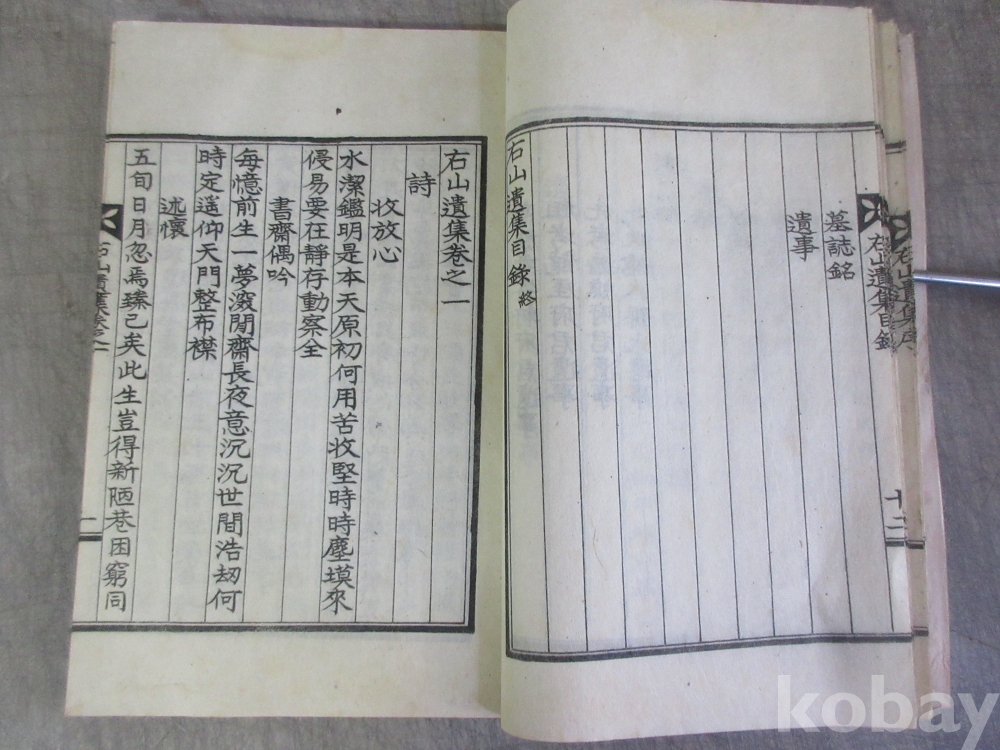 右山遺集序
右山遺集目錄
十二
墓誌銘
遺事
右山遺集目錄 終
右山遺集卷之一
詩
收放心
水潔鑑明是本天原初何用苦收堅時時塵㙁來
侵易要在靜存動察全
書齋偶吟
每憶前生一夢滾閒齋長夜意沉沉世間浩劫何
時定遙仰天門整布襟
述懷
五旬日月忽焉臻已矣此生豈得新陋巷困窮同
右山遺集卷之一
一
kobay